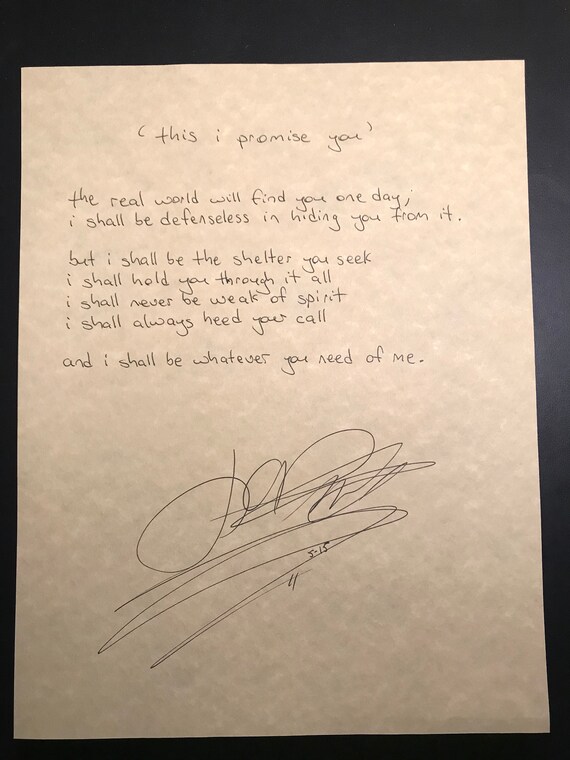 (this i promise you)
the real world will find you one day;
i shall be defenseless in hiding you from it.
but i shall be the shelter you seek
i shall hold you through it all
i shall never be weak of spirit
i shall always heed your call
and i shall be whatever you need of me.
5-15
11